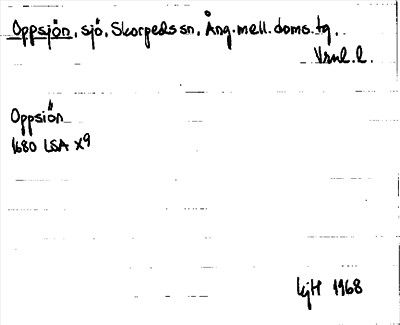 Oppsjön, sjö, Skorpeds sn, Ång. mell. doms. tg.
Vrnl. l.
Oppsiön
1680 LSA X9
LjH 1968